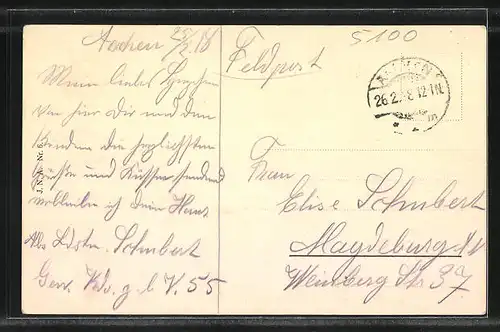 Aachen 25/2 18
Mein liebes Herzchen
von hier Dir und den
Kindern die herzlichsten
Grüße und Küsse sendend
verbleibe ich Dein Hans
Abs. Ldstm. Schubert
Gen. Kdo. z. b. V. 55
J. N. A. Nr. 6
Feldpost
5100
AACHEN
26.2.18 12-1N.
Frau
Elise Schubert
Magdeburg
Weinberg Str 37